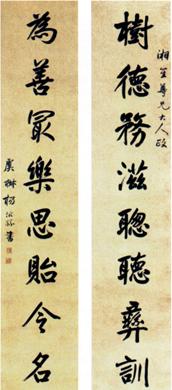 樹德務滋聰聽彝訓
湘笙尊兄大人政
為善冣樂思貽令名
虞 楊 孫書